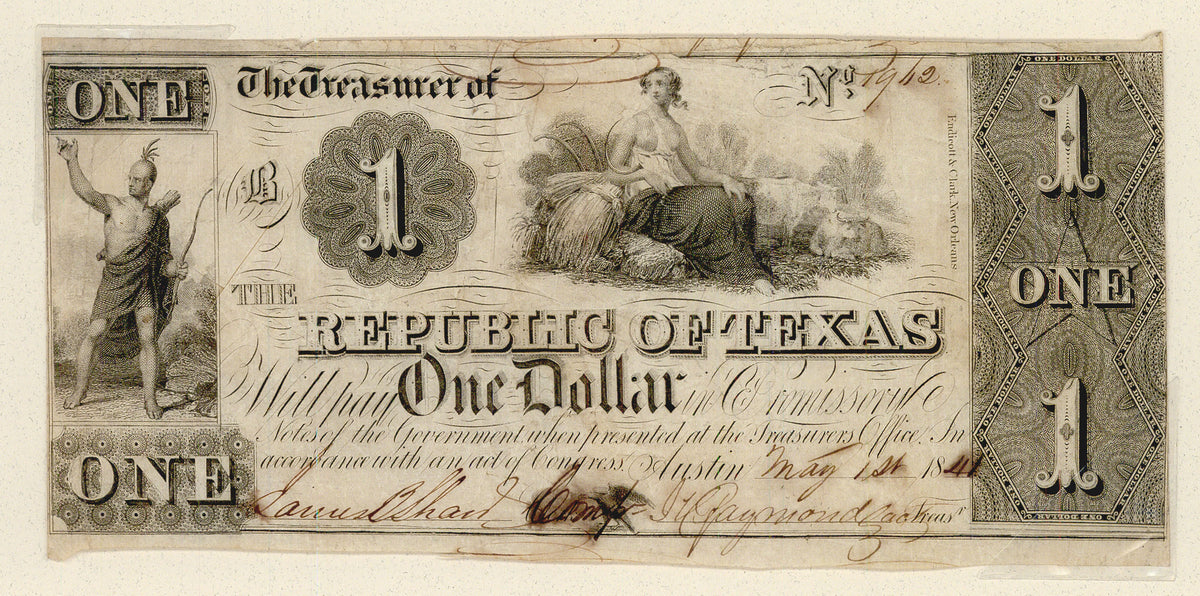 ONE
The Treasurer of
No. 1942
B
1
THE
REPUBLIC OF TEXAS
Will pay One Dollar in Promissory
Notes of the Government when presented at the Treasurers Office. In
accordance with an act of Congress. Austin May 1st 1841
James B Shaw Compt. JH Raymond act Treasr
ONE
Endicott & Clark, New Orleans
ONE DOLLAR
1
ONE
1
ONE DOLLAR